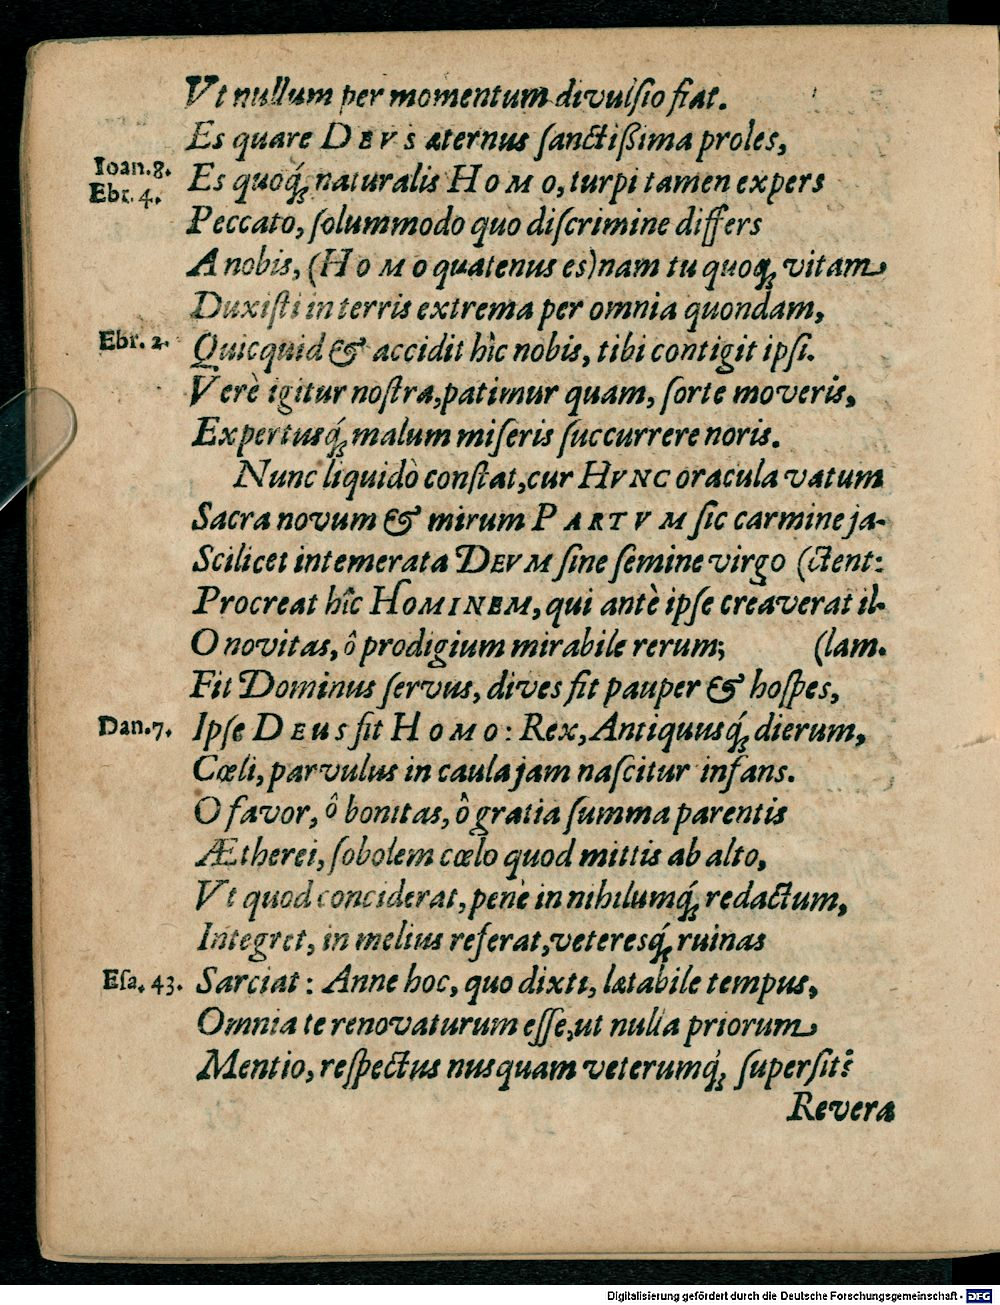 Vt nullum per momentum divulſio fiat.
Es quare DEVS æternus ſanctißima proles,
Ioan.8.
Ebr. 4.
Es quoq́; naturalis HOMO, turpi tamen expers
Peccato, ſolummodo quo diſcrimine differs
A nobis, (HOMO quatenus es) nam tu quoq; vitam
Duxiſti in terris extrema per omnia quondam,
Ebr. 2.
Quicquid & accidit hîc nobis, tibi contigit ipſi.
Verè igitur noſtra, patimur quam, ſorte moveris,
Expertusq́; malum miſeris ſuccurrere noris.
Nunc liquidò conſtat, cur HVNC oracula vatum
Sacra novum & mirum PARTVM ſic carmine ja-
Scilicet intemerata DEVM ſine ſemine virgo (ctent:
Procreat hîc HOMINEM, qui antè ipſe creaverat il-
O novitas, ô prodigium mirabile rerum; (lam.
Fit Dominus ſervus, dives fit pauper & hoſpes,
Dan.7.
Ipſe DEUS fit HOMO: Rex, Antiquusq́; dierum,
Cœli, parvulus in caula jam naſcitur infans.
O favor, ô bonitas, ô gratia ſumma parentis
Ætherei, ſobolem cœlo quod mittis ab alto,
Vt quod conciderat, penè in nihilumq́; redactum,
Integret, in melius referat, veteresq́; ruinas
Eſa. 43.
Sarciat: Anne hoc, quo dixti, lætabile tempus,
Omnia te renovaturum eſſe, ut nulla priorum
Mentio, reſpectus nusquam veterumq́; ſuperſit?
Revera
Digitalisierung gefördert durch die Deutsche Forschungsgemeinschaft - DFG